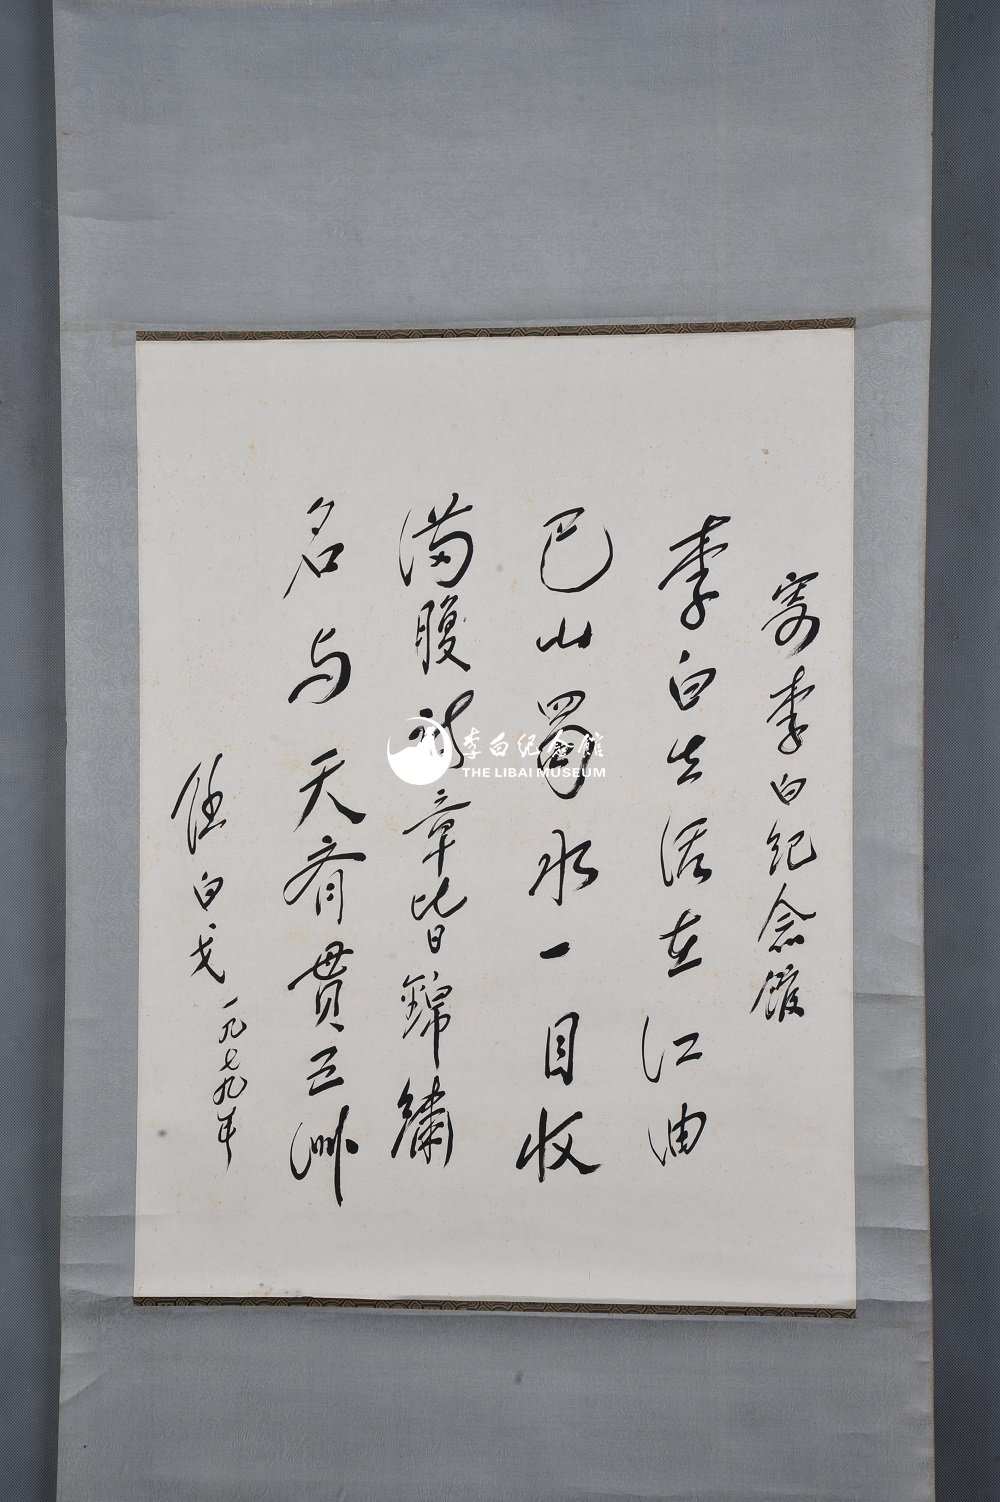 寄李白纪念馆
李白生活在江油
巴山蜀水一目收
满腹章皆錦繡
名与天齊貫五洲
任白戈 一九七九年
李白纪念館
THE LIBAI MUSEUM